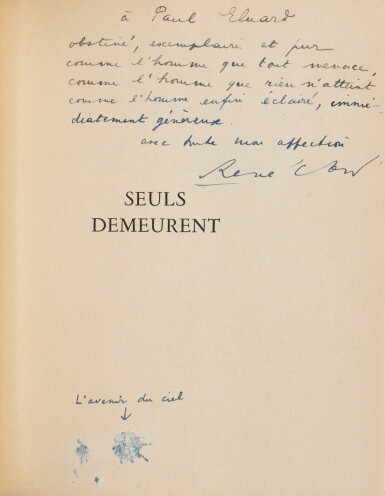 à Paul Eluard
obstiné, exemplaire et pur
comme l'homme que tout menace,
comme l'homme que rien n'atteint
comme l'homme enfin éclairé, immé-
diatement généreux.
avec toute mon affection
René Char
SEULS
DEMEURENT
L'avenir du ciel